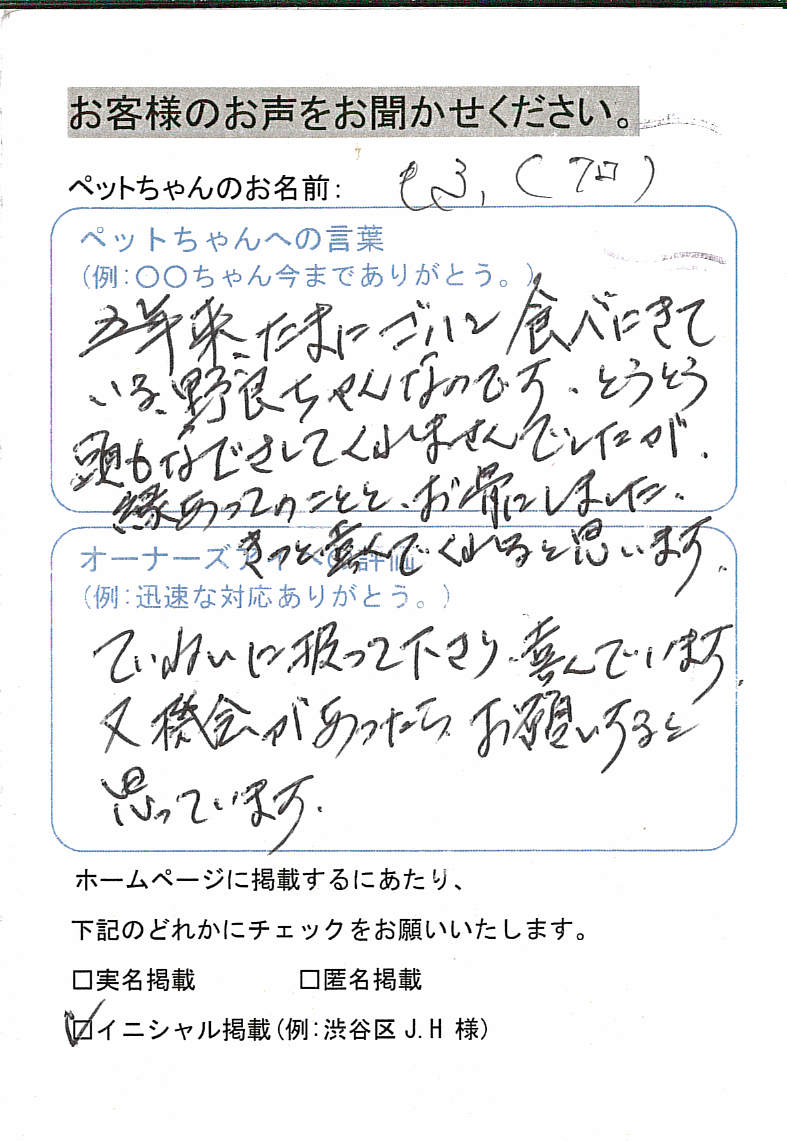 お客様のお声をお聞かせください。
ペットちゃんのお名前:
ペットちゃんへの言葉
(例:〇〇ちゃん今までありがとう。)
五年来、たまにゴハン食べにきて
いる、野良ちゃんなのです、とうとう
頭もなでさしてくれませんでしたが、
縁あってのことと、お骨にしました、
きっと喜んでくれると思います、
オーナーズ
(例:迅速な対応ありがとう。)
ていねいに扱って下さり、喜んでいます、
又機会があったら、お願いすると
思っています、
ホームページに掲載するにあたり、
下記のどれかにチェックをお願いいたします。
□実名掲載 □匿名掲載
☑イニシャル掲載(例:渋谷区 J.H 様)